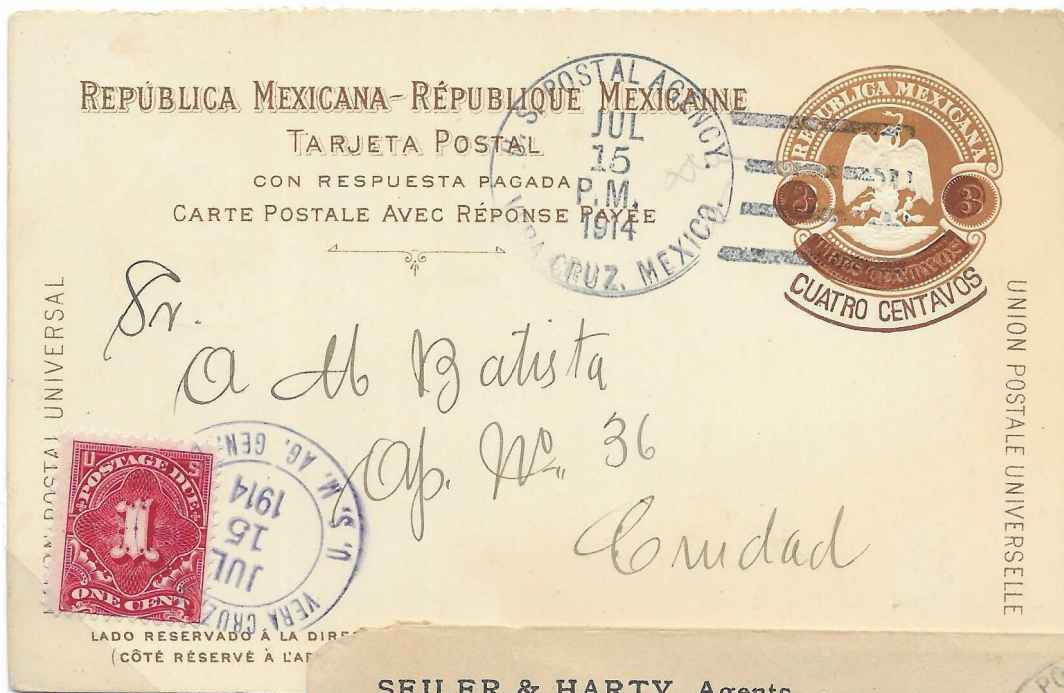 REPÚBLICA MEXICANA-RÉPUBLIQUE MEXICAINE
TARJETA POSTAL
CON RESPUESTA PAGADA
CARTE POSTALE AVEC RÉPONSE PAYÉE
U.S. POSTAL AGENCY,
JUL
15
P.M.
1914
VERA CRUZ, MEXICO.
REPUBLICA MEXICANA
3 3
TRES CENTAVOS
CUATRO CENTAVOS
UNION POSTAL UNIVERSAL
UNION POSTALE UNIVERSELLE
Sr.
A M Batista
Ap. No. 36
Ciudad
U S
POSTAGE DUE
1
ONE CENT
U.S. M. AG. GEN.
JUL
15
1914
VERA CRUZ
LADO RESERVADO Á LA DIRE
(CÔTÉ RÉSERVÉ À L'A
SEILER & HARTY, Agents